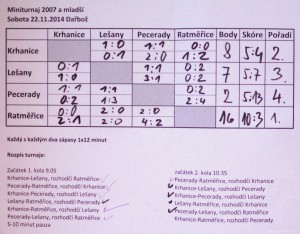 Miniturnaj 2007 a mladší
Sobota 22.11.2014 Daňbož
Krhanice Lešany Pecerady Ratměřice Body Skóre Pořadí
Krhanice 1:0 1:1 0:0 8 5:4 2.
0:1 2:0 1:2
Lešany 0:1 1:1 0:2 7 5:7 3.
1:0 2:0 1:2
Pecerady 1:1 1:1 0:2 2 5:13 4.
0:2 0:2 2:4
Ratměřice 0:0 2:0 2:0 16 10:3 1.
2:1 2:1 4:2
Každý s každým dva zápasy 1x12 minut
Rozpis turnaje:
Začátek 1. kola 9.05
Krhanice-Lešany, rozhodčí Ratměřice
Pecerady-Ratměřice, rozhodčí Krhanice
Krhanice-Pecerady, rozhodčí Lešany
Lešany-Ratměřice, rozhodčí Pecerady
Krhanice-Ratměřice, rozhodčí Lešany
Pecerady-Lešany, rozhodčí Ratměřice
5-10 minut pauza
začátek 2. kola 10.35
Pecerady-Ratměřice, rozhodčí Krhanice
Krhanice-Lešany, rozhodčí Pecerady
Krhanice-Pecerady, rozhodčí Lešany
Lešany-Ratměřice, rozhodčí Krhanice
Pecerady-Lešany, rozhodčí Ratměřice
Krhanice-Ratměřice, rozhodčí Pecerady